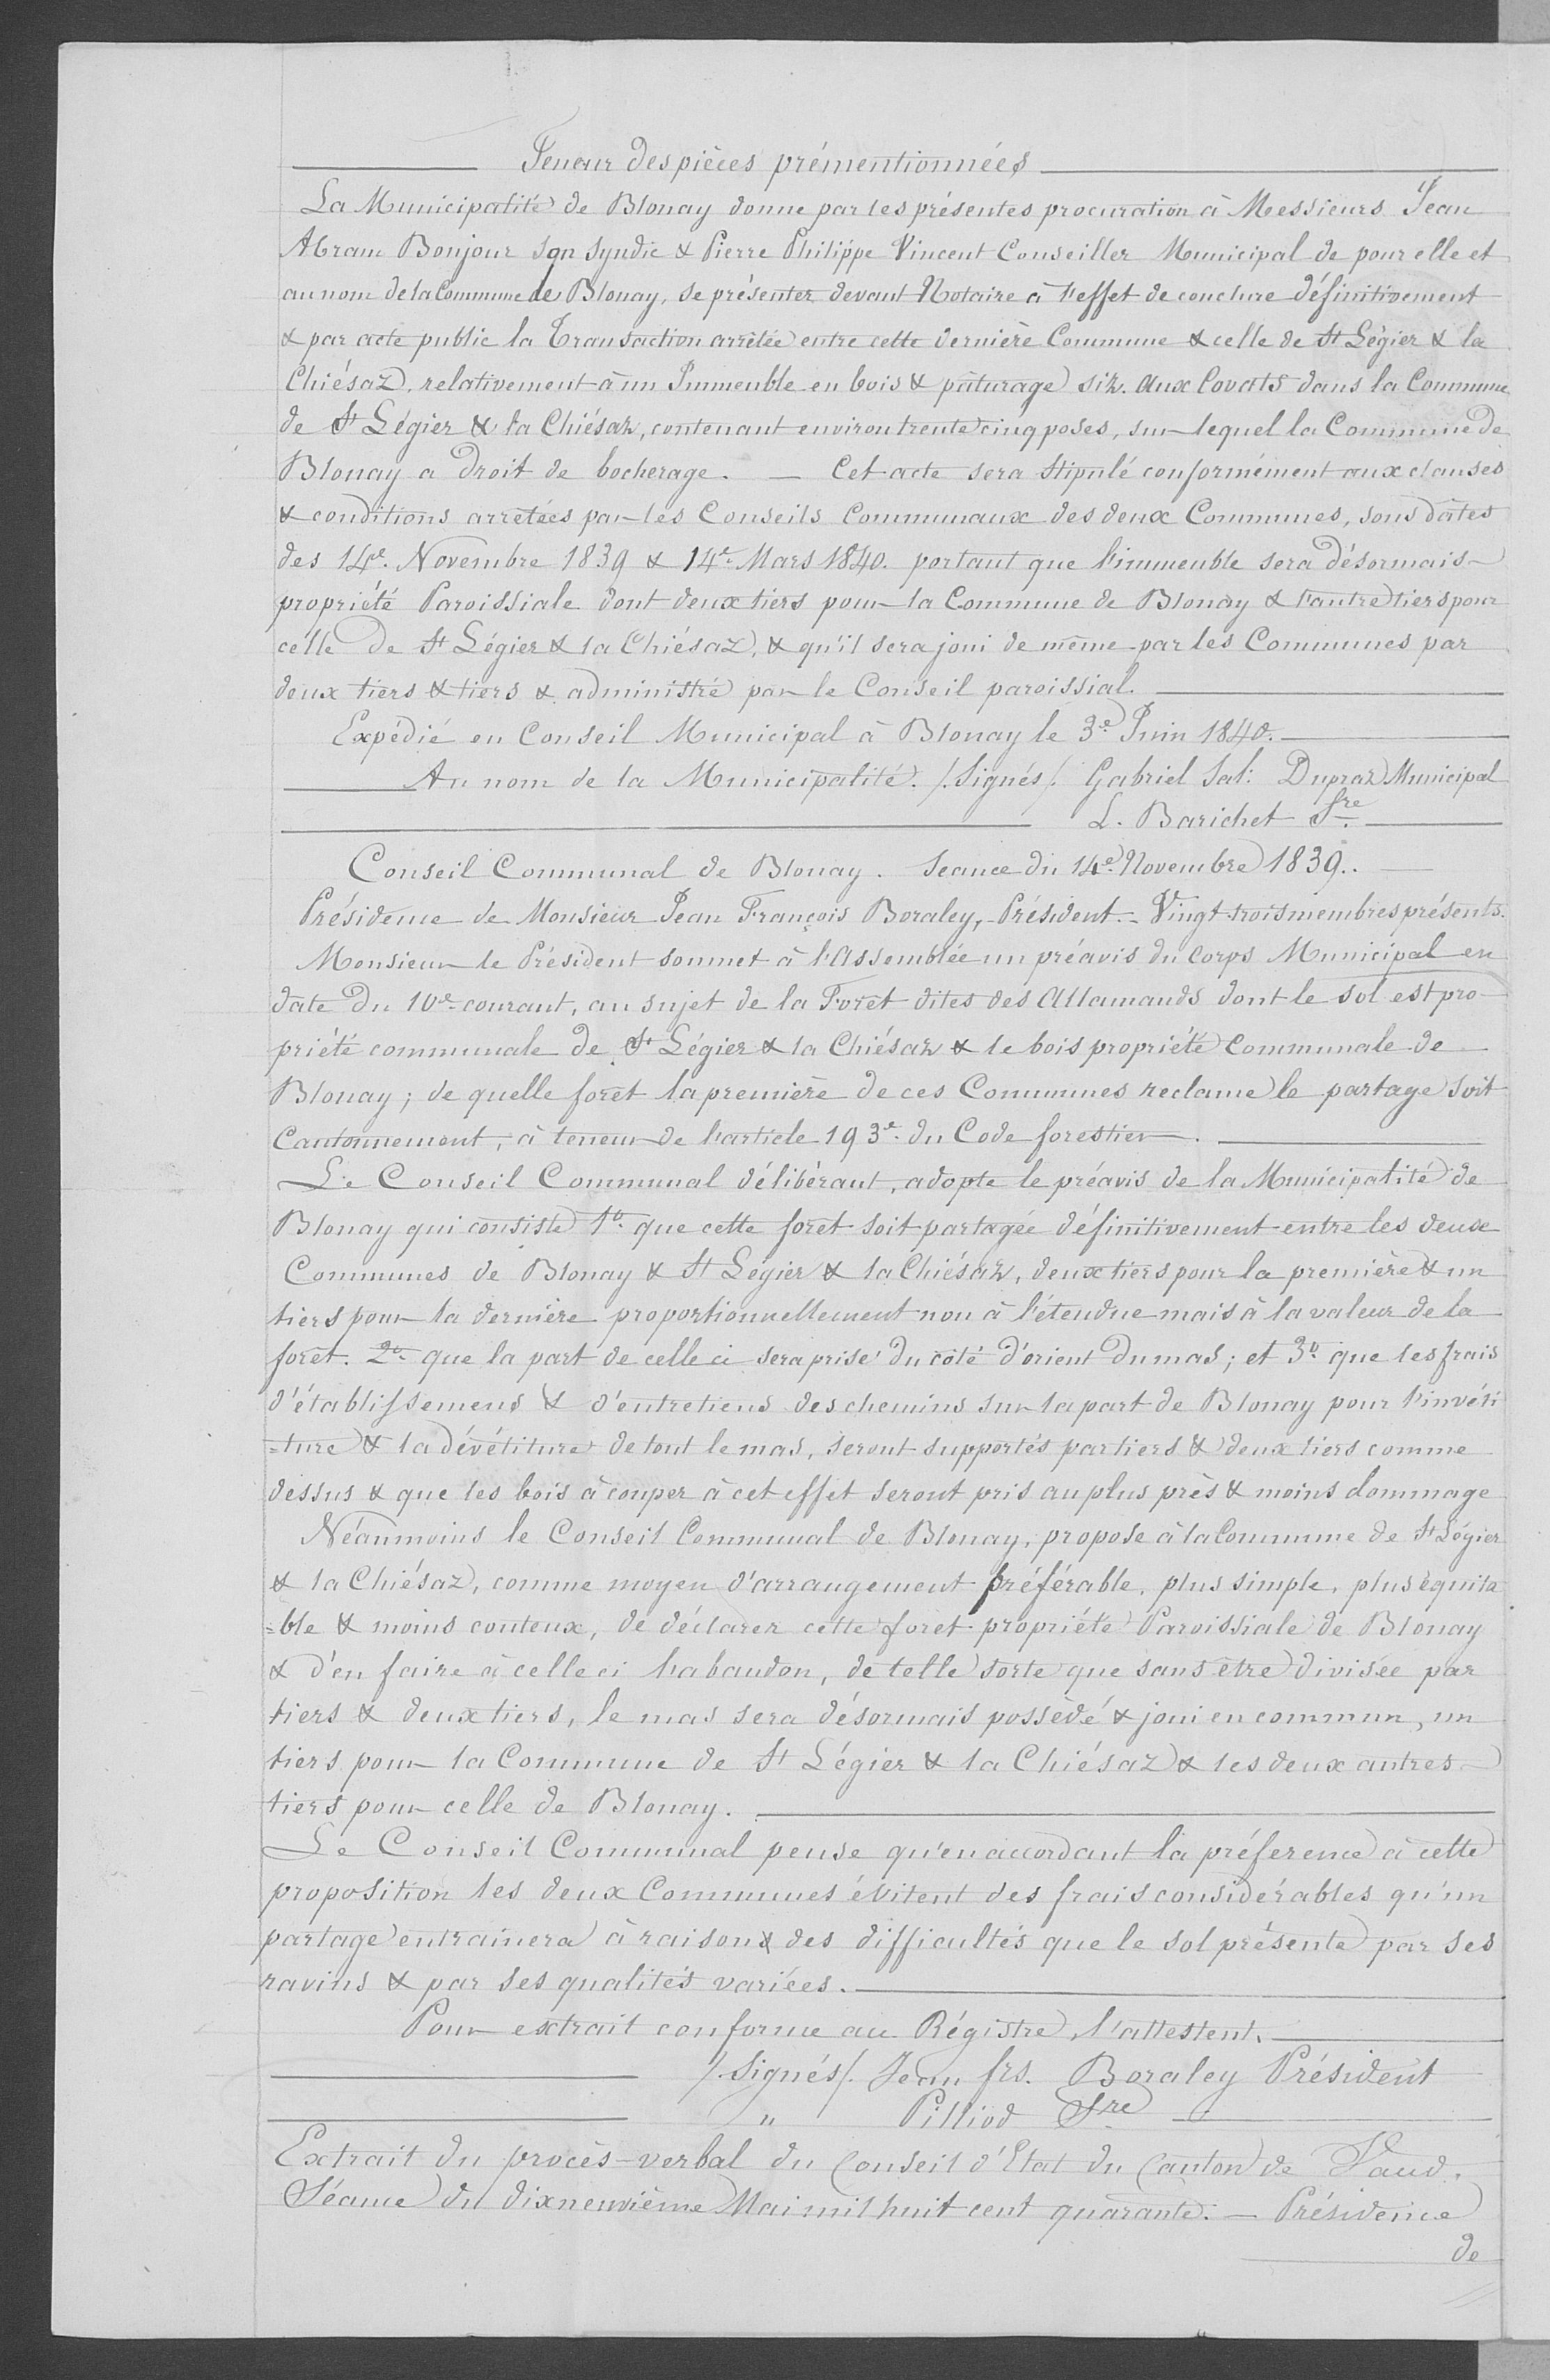 Teneur des pièces prémentionnées
La Municipalité de Blonay donne par les présentes procuration à Messieurs Jean
Abram Bonjour son syndic & Pierre Philippe Vincent Conseiller Municipal de pour elle et
au nom de la Commune de Blonay, se présenter devant Notaire à l'effet de conclure définitivement
& par acte public la Transaction arrêtée entre cette dernière Commune & celle de St Légier & la
Chiésaz, relativement à un Immeuble en bois & pâturage siz. aux Covats dans la Commune
de St Légier & la Chiésaz, contenant environ trente cinq poses, sur lequel la Commune de
Blonay a droit de bocherage. — Cet acte sera stipulé conformément aux clauses
& conditions arrêtées par les Conseils Communaux des deux Communes, sous dates
des 14e. Novembre 1839 & 14e. Mars 1840. portant que l'immeuble sera désormais
propriété Paroissiale dont deux tiers pour la Commune de Blonay & l'autre tiers pour
celle de St Légier & la Chiésaz, & qu'il sera joui de même par les Communes par
deux tiers & tiers & administré par le Conseil paroissial.
Expédié en Conseil Municipal à Blonay le 3e Juin 1840.
Au nom de la Municipalité. /. Signés /. Gabriel Sal: Dupraz Municipal
L. Barichet Sre.
Conseil Communal de Blonay. Seance du 14e. Novembre 1839..
Présidence de Monsieur Jean François Boraley, Président. — Vingt-trois membres présents.
Monsieur le Président soumet à l'Assemblée un préavis du Corps Municipal en
date du 10e. courant, au sujet de la Forêt dites des Allamands dont le sol est pro-
priété communale de St Légier & la Chiésaz & le bois propriété communale de
Blonay; de quelle forêt la première de ces Communes reclame le partage soit
Cantonnement, à teneur de l'article 193e. du Code forestier.
Le Conseil Communal délibérant, adopte le préavis de la Municipalité de
Blonay qui consiste 1o. que cette forêt soit partagée définitivement entre les deux
Communes de Blonay & St Légier & la Chiésaz, deux tiers pour la première & un
tiers pour la dernière proportionnellement non à l'étendue mais à la valeur de la
forêt. 2o. que la part de celle ci sera prise du côté d'orient du mas; et 3o. que les frais
d'établissemens & d'entretiens des chemins sur la part de Blonay pour l'invéti
=ture & la dévétiture de tout le mas, seront supportés par tiers & deux tiers comme
dessus & que les bois à couper à cet effet seront pris au plus près & moins dommage
Néanmoins le Conseil Communal de Blonay, propose à la Commune de St Légier
& la Chiésaz, comme moyen d'arrangement préférable, plus simple, plus équita
=ble & moins couteux, de déclarer cette foret propriété Paroissiale de Blonay
& d'en faire à celle ci l'abandon, de telle sorte que sans être divisée par
tiers & deux tiers, le mas sera désormais possédé & joui en commun, un
tiers pour la Commune de St Légier & la Chiésaz & les deux autres
tiers pour celle de Blonay.
Le Conseil Communal pense qu'en accordant la préference à cette
proposition les deux Communes évitent des frais considérables qu'un
partage entrainera à raison & des difficultés que le sol présente par ses
ravins & par ses qualités variées.
Pour extrait conforme au Régistre, l'attestent.
/. Signés /. Jean frs. Boraley Président
" Pilliod Sre
Extrait du procès-verbal du Conseil d'Etat du Canton de Vaud.
Séance du dixneuvième Mai mil huit cent quarante. — Présidence
de